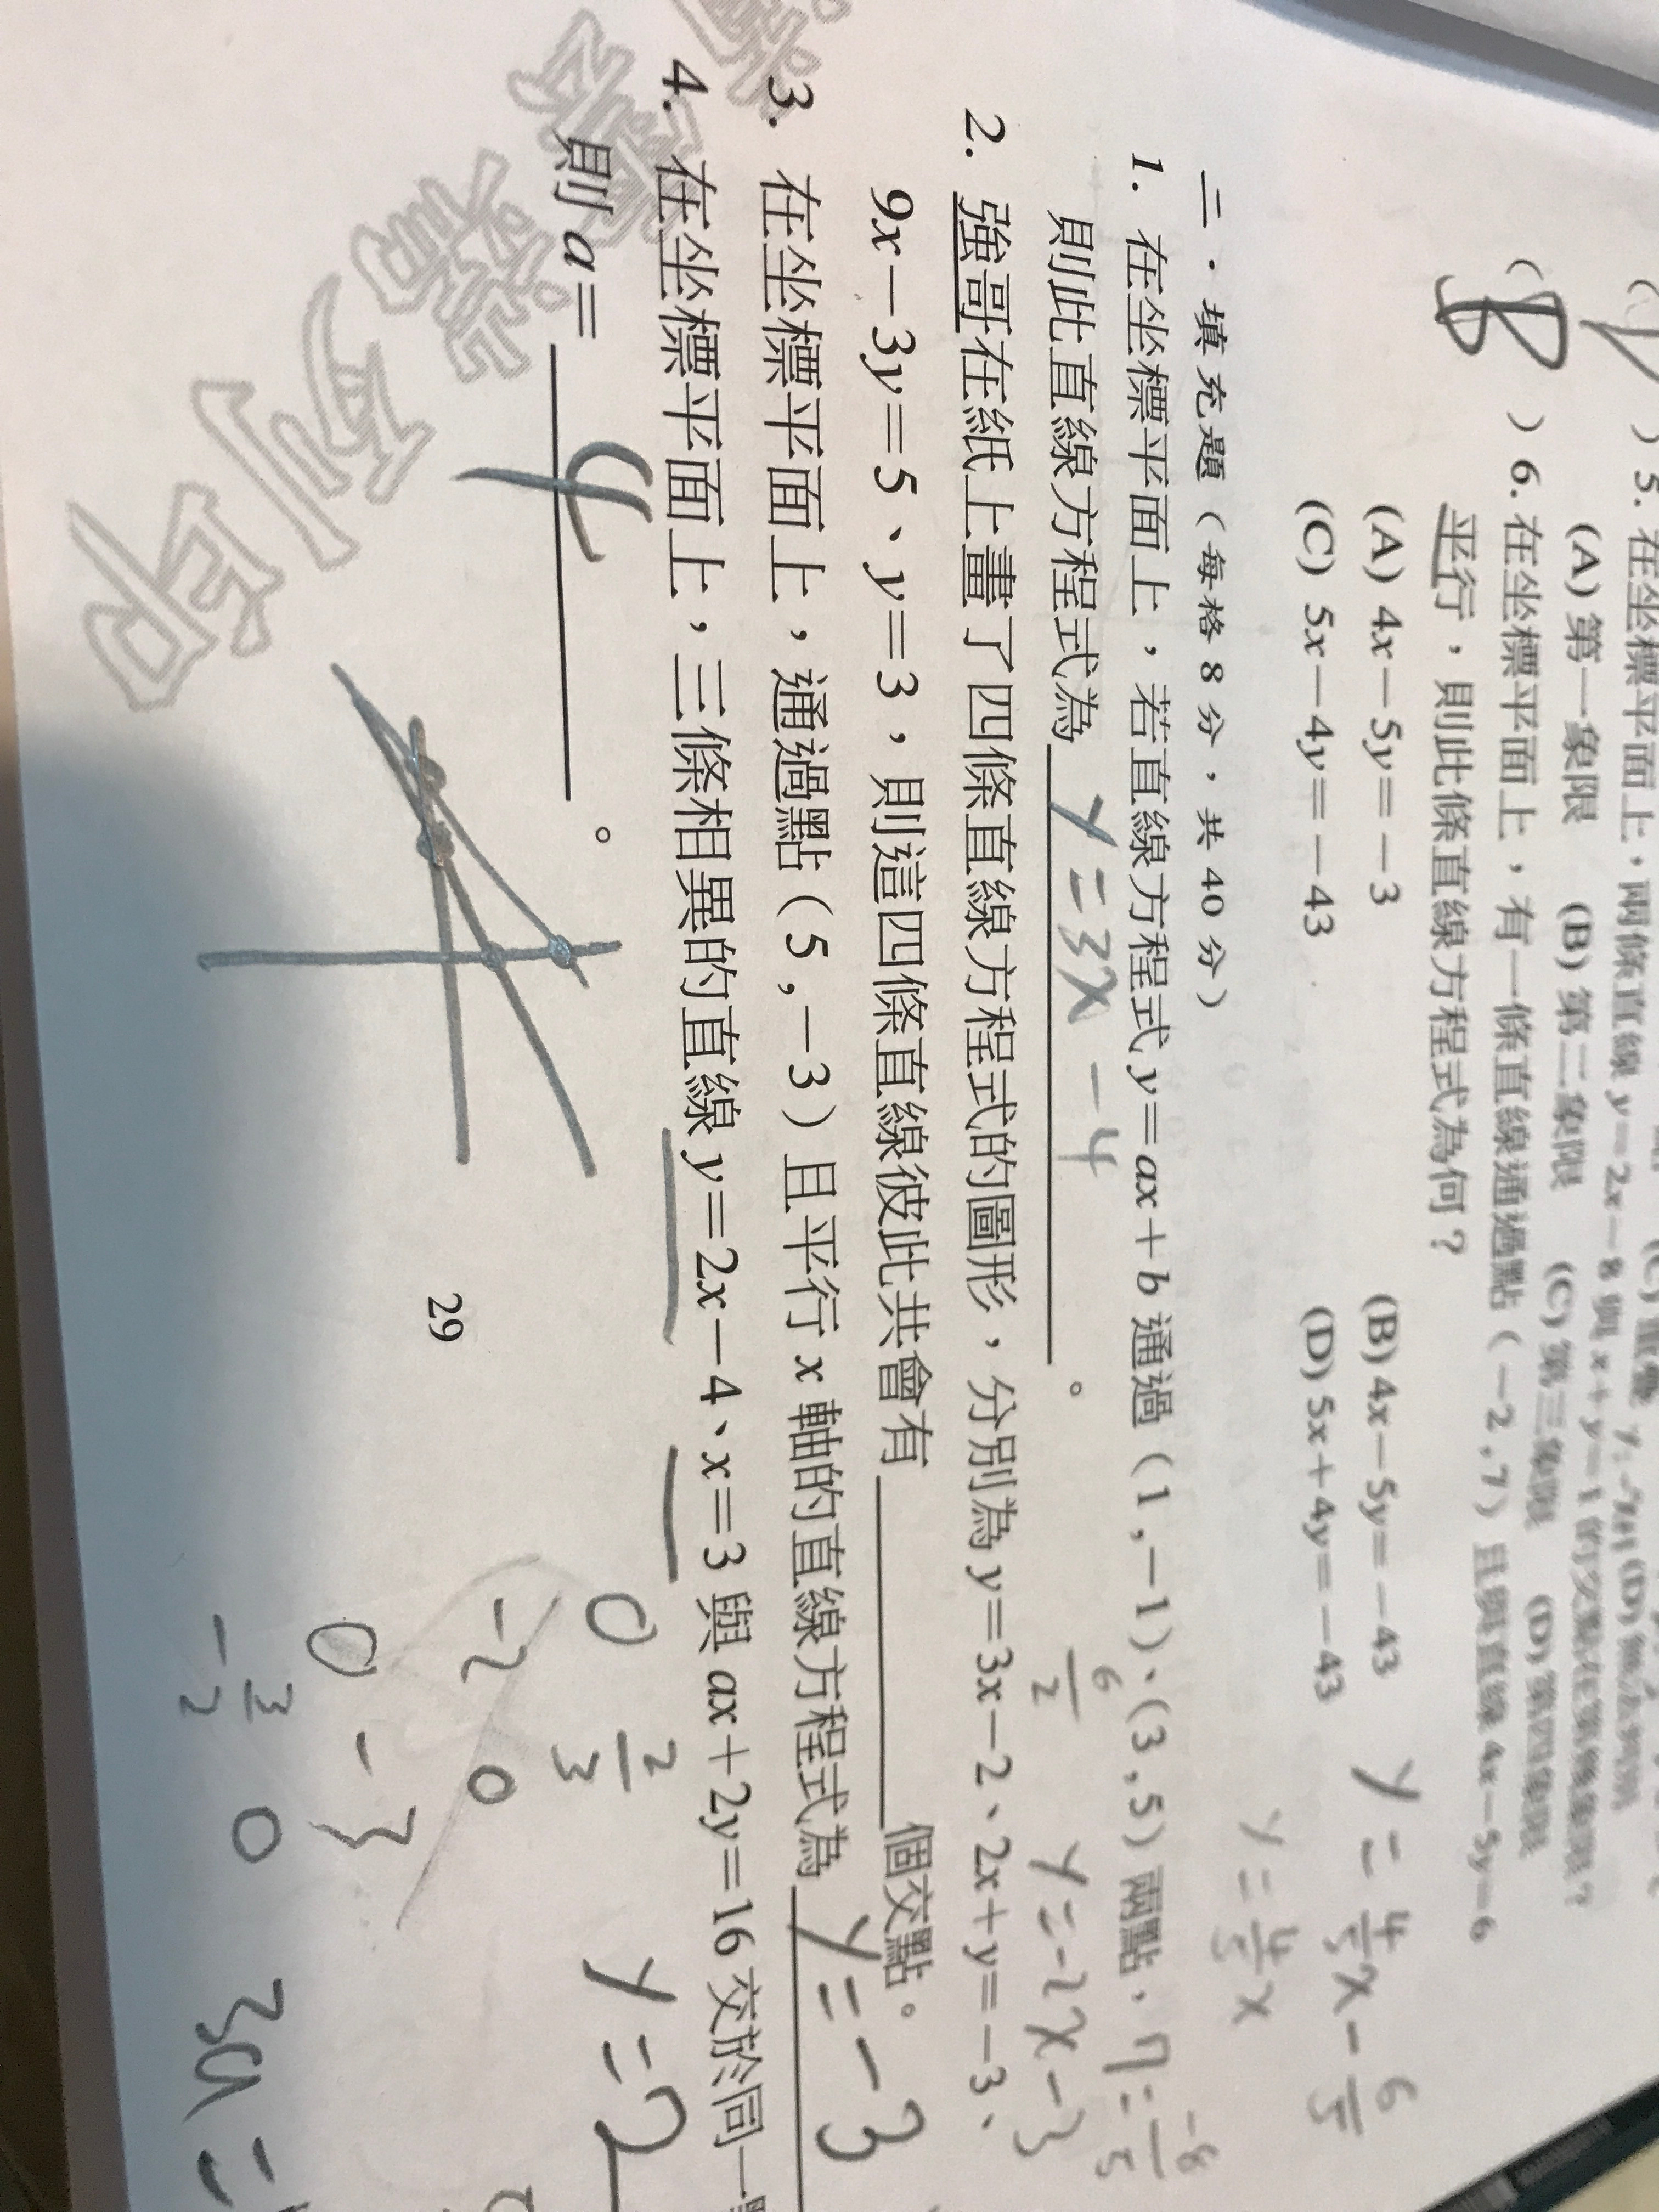 5. 在坐標平面上，兩條直線 y＝2x－8 與 x＋y＝1 的交點在第幾象限？
(A) 第一象限 (B) 第二象限 (C) 第三象限 (D) 第四象限
( B ) 6. 在坐標平面上，有一條直線通過點（－2 , 7）且與直線 4x－5y＝6
平行，則此條直線方程式為何？
(A) 4x－5y＝－3 (B) 4x－5y＝－43
(C) 5x－4y＝－43 (D) 5x＋4y＝－43
y = 4/5 x - 6/5
y = 4/5 x
二．填充題（每格 8 分，共 40 分）
1. 在坐標平面上，若直線方程式 y＝ax＋b 通過（1 ,－1）、（3 , 5）兩點，
則此直線方程式為 y = 3x - 4 。
6/2
y = -2x - 3
2. 強哥在紙上畫了四條直線方程式的圖形，分別為 y＝3x－2、2x＋y＝－3、
9x－3y＝5、y＝3，則這四條直線彼此共會有 個交點。
3. 在坐標平面上，通過點（5 ,－3）且平行 x 軸的直線方程式為 y = -3
4. 在坐標平面上，三條相異的直線 y＝2x－4、x＝3 與 ax＋2y＝16 交於同一
則 a＝ 4 。
0 2/3
-2 0
y = 2
0 -3
-3/2 0
3a =
29
教育
專刊